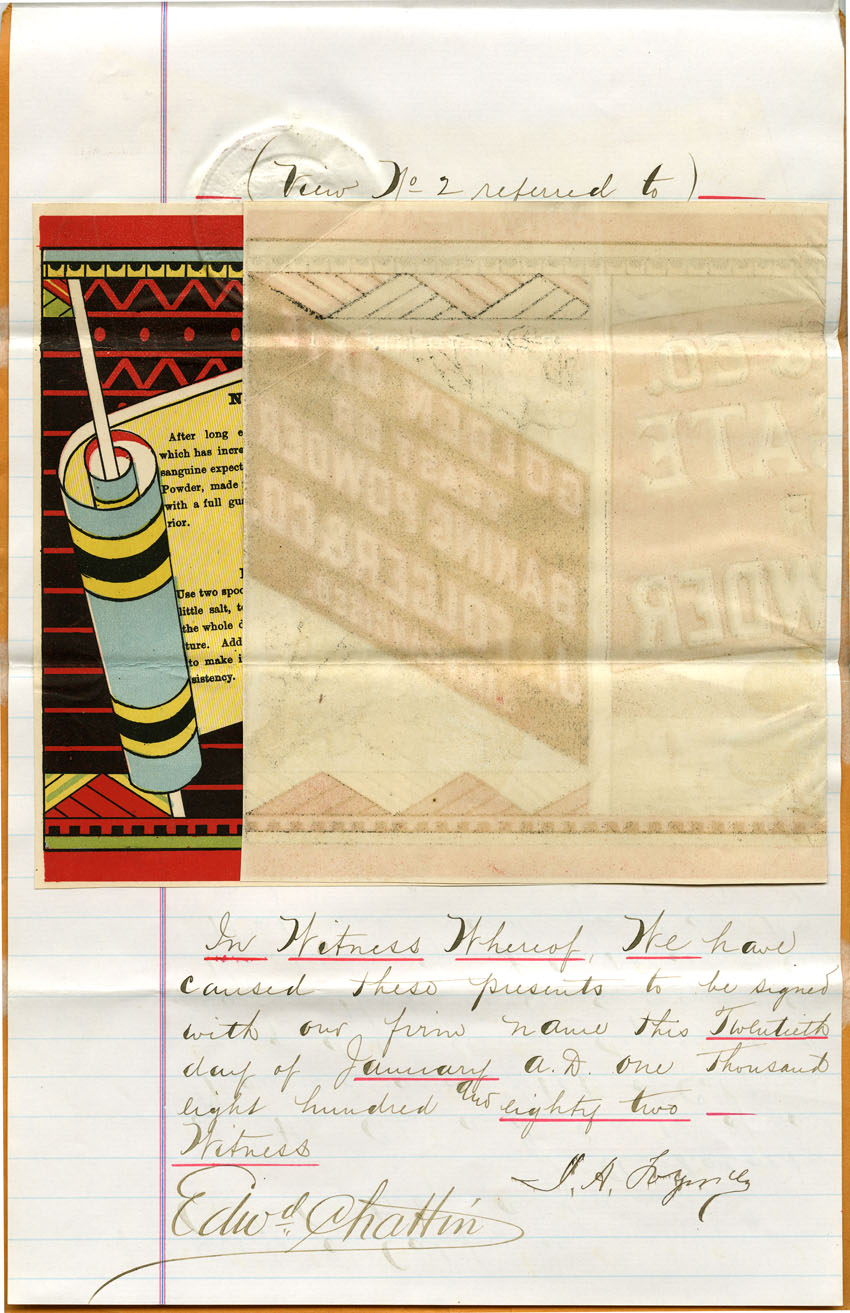 (View No 2 referred to)
N
After long e
which has incre
sanguine expect
Powder, made
with a full gu
rior.
Use two spoo
little salt, t
the whole d
ture. Add
to make i
sistency.
GOLDEN GATE
BAKING POWDER
& CO.
& CO.
ATE
NDER
In Witness Whereof, We have
caused these presents to be signed
with our firm name this Twentieth
day of January A.D. one thousand
eight hundred and eighty two
Witness
Edwd Chattin